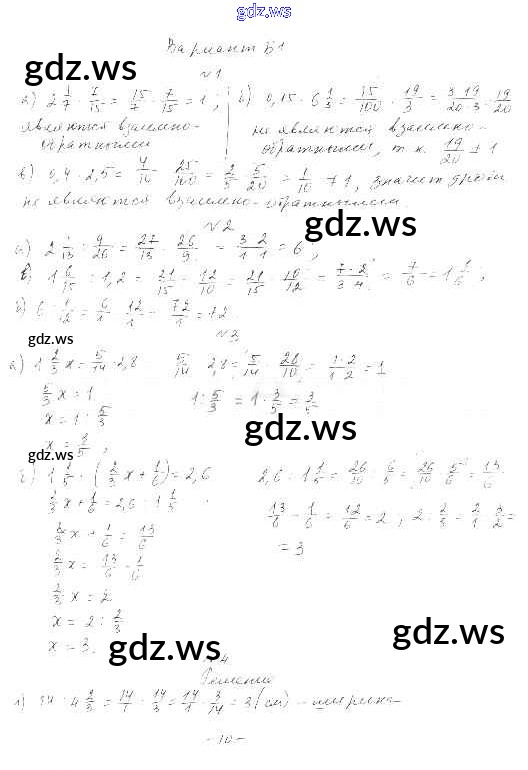 gdz.ws
Вариант Б1
gdz.ws
№1
а) 2 1/7 · 7/15 = 15/7 · 7/15 = 1;
являются взаимно-
обратными
б) 0,15 · 6 1/3 = 15/100 · 19/3 = 3·19/20·3 = 19/20
не являются взаимно-
обратными, т.к. 19/20 ≠ 1
в) 0,4 · 2,5 = 4/10 · 25/100 = 2/5 · 5/20 = 1/10 ≠ 1, значит дроби
не являются взаимно-обратными.
№2
gdz.ws
а) 2 1/13 : 9/26 = 27/13 · 26/9 = 3·2/1·1 = 6;
б) 1 6/15 : 1,2 = 21/15 : 12/10 = 21/15 · 10/12 = 7·2/3·4 = 7/6 = 1 1/6;
в) 6 : 1/12 = 6/1 · 12/1 = 72/1 = 72.
№3
gdz.ws
а) 1 2/3 x = 5/14 · 2,8
5/14 · 2,8 = 5/14 · 28/10 = 1·2/1·2 = 1
5/3 x = 1
1 : 5/3 = 1 · 3/5 = 3/5
x = 1 : 5/3
gdz.ws
gdz.ws
б) 1 1/5 · (2/3 x + 1/6) = 2,6
2,6 : 1 1/5 = 26/10 : 6/5 = 26/10 · 5/6 = 13/6
2/3 x + 1/6 = 2,6 : 1 1/5
13/6 - 1/6 = 12/6 = 2; 2 : 2/3 = 2/1 · 3/2 =
= 3
2/3 x + 1/6 = 13/6
2/3 x = 13/6 - 1/6
2/3 x = 2
x = 2 : 2/3
x = 3.
gdz.ws
gdz.ws
№4
Решение
1) 14 : 4 2/3 = 14/1 : 14/3 = 14/1 · 3/14 = 3 (см) - ширина
- 10 -